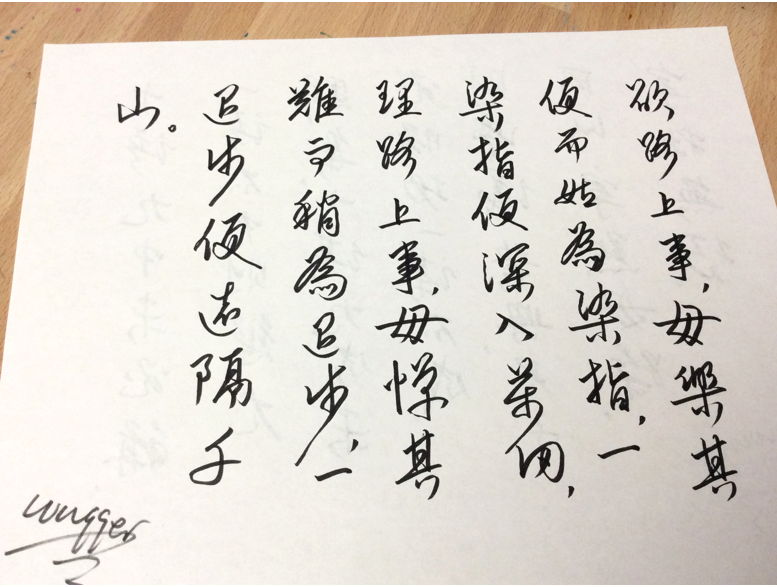 欲路上事,毋樂其
便而姑為染指,一
染指便深入萬仞,
理路上事,毋憚其
難而稍為退步,一
退步便遠隔千
山。